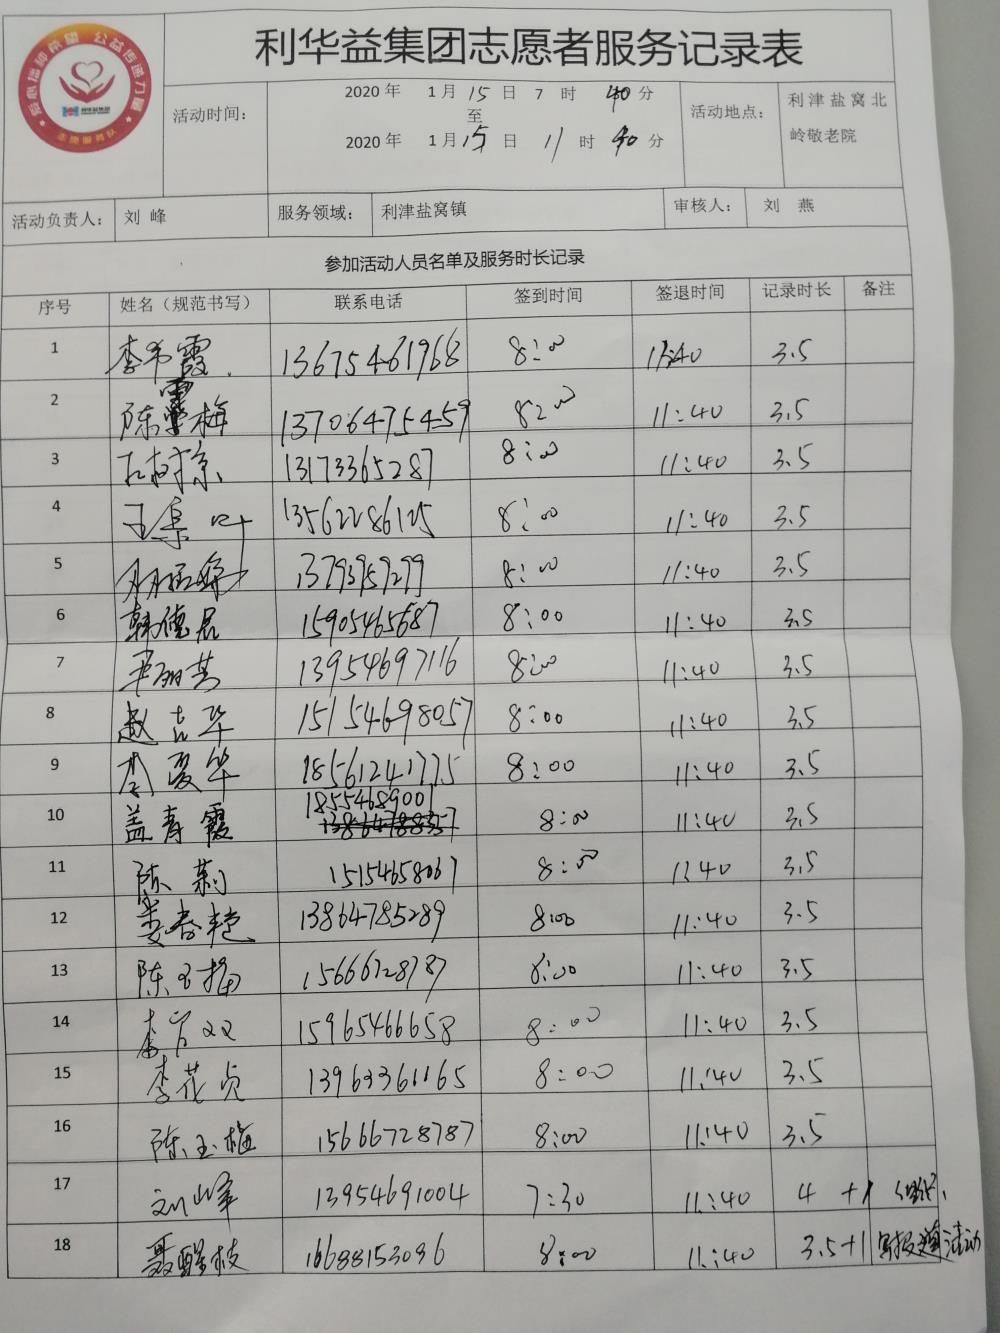 爱心播种希望 公益传递力量
利华益集团
志愿服务队
利华益集团志愿者服务记录表
活动时间：
2020 年 1 月 15 日 7 时 40 分
至
2020 年 1 月 15 日 11 时 40 分
活动地点：
利津盐窝北
岭敬老院
活动负责人： 刘 峰 服务领域： 利津盐窝镇 审核人： 刘 燕
参加活动人员名单及服务时长记录
序号 姓名（规范书写） 联系电话 签到时间 签退时间 记录时长 备注
1 霞 13675461968 8:00 11:40 3.5
2 陈 梅 13706475459 8:00 11:40 3.5
3 13173365287 8:00 11:40 3.5
4 王集叶 13562286125 8:00 11:40 3.5
5 13793959299 8:00 11:40 3.5
6 韩德君 15905465687 8:00 11:40 3.5
7 13954697116 8:00 11:40 3.5
8 赵吉华 15154698057 8:00 11:40 3.5
9 李爱华 18561241775 8:00 11:40 3.5
10 盖青霞 18554689001 8:00 11:40 3.5
11 陈莉 15154658067 8:00 11:40 3.5
12 娄春艳 13864785289 8:00 11:40 3.5
13 陈玉梅 15666728787 8:00 11:40 3.5
14 15965466658 8:00 11:40 3.5
15 李花贞 13963361165 8:00 11:40 3.5
16 陈玉梅 15666728787 8:00 11:40 3.5
17 刘峰 13954691004 7:30 11:40 4 +1
18 聂 枝 16688153096 8:00 11:40 3.5+1 活动